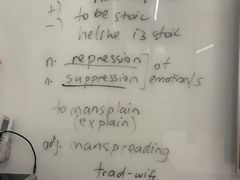 +) to be stoic
-) he/she is stoic
n. repression } of
n. suppression } emotion/s
to mansplain
(explain)
adj. manspreading
trad-wife